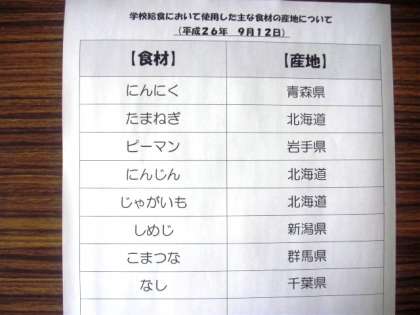 学校給食において使用した主な食材の産地について
（平成２６年　９月１２日）
【食材】　【産地】
にんにく　青森県
たまねぎ　北海道
ピーマン　岩手県
にんじん　北海道
じゃがいも　北海道
しめじ　新潟県
こまつな　群馬県
なし　千葉県